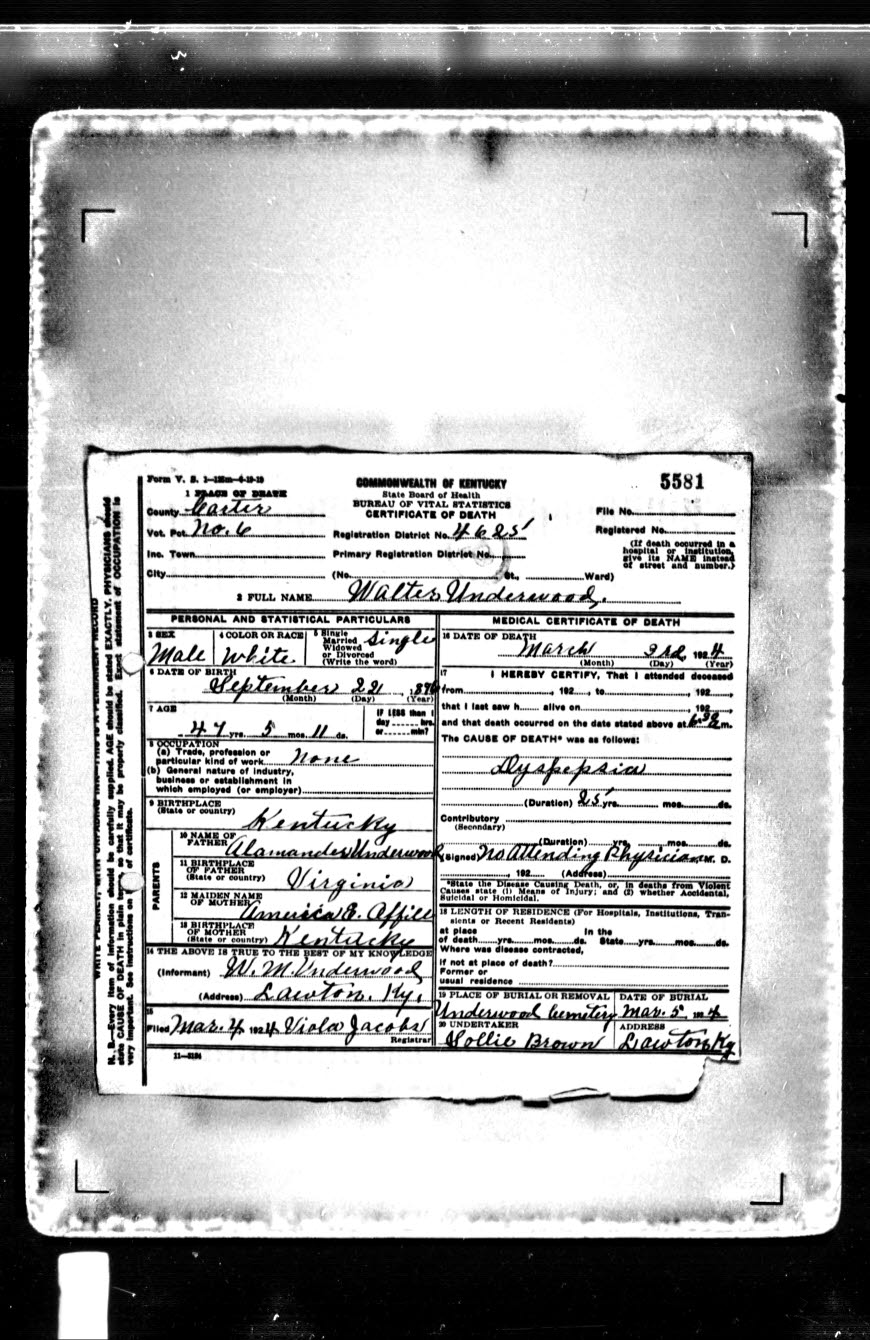 Form V. S. 1
5581
COMMONWEALTH OF KENTUCKY
State Board of Health
BUREAU OF VITAL STATISTICS
CERTIFICATE OF DEATH
1 PLACE OF DEATH
County Carter
Vot. Pct. No. 6
Inc. Town
City
Registration District No. 4625
Primary Registration District No.
(No. St., Ward)
File No.
Registered No.
(If death occurred in a
hospital or institution,
give its NAME instead
of street and number.)
2 FULL NAME Walter Underwood.
PERSONAL AND STATISTICAL PARTICULARS
3 SEX
Male
4 COLOR OR RACE
White
5 Single
Married
Widowed
or Divorced
(Write the word)
Single
6 DATE OF BIRTH
September 22 , 1876
(Month) (Day) (Year)
7 AGE
47 yrs. 5 mos. 11 ds.
IF LESS than 1
day hrs.
or min?
8 OCCUPATION
(a) Trade, profession or
particular kind of work None
(b) General nature of industry,
business or establishment in
which employed (or employer)
9 BIRTHPLACE
(State or country)
Kentucky
PARENTS
10 NAME OF
FATHER Alamander Underwood
11 BIRTHPLACE
OF FATHER
(State or country) Virginia
12 MAIDEN NAME
OF MOTHER America E. Affill
13 BIRTHPLACE
OF MOTHER
(State or country) Kentucky
14 THE ABOVE IS TRUE TO THE BEST OF MY KNOWLEDGE
(Informant) W. M. Underwood
(Address) Lawton, Ky.
15
Filed Mar. 4 1924 Viola Jacobs
Registrar
11—3184
MEDICAL CERTIFICATE OF DEATH
16 DATE OF DEATH
March 3rd, 1924
(Month) (Day) (Year)
17 I HEREBY CERTIFY, That I attended deceased
from , 192 , to , 192 ,
that I last saw h alive on , 192 ,
and that death occurred on the date stated above at m.
The CAUSE OF DEATH* was as follows:
Dyspepsia
(Duration) 25 yrs. mos. ds.
Contributory
(Secondary)
(Duration) yrs. mos. ds.
(Signed) No Attending Physician M. D.
, 192 (Address)
*State the Disease Causing Death, or, in deaths from Violent
Causes state (1) Means of Injury; and (2) whether Accidental,
Suicidal or Homicidal.
18 LENGTH OF RESIDENCE (For Hospitals, Institutions, Tran-
sients or Recent Residents)
at place In the
of death yrs. mos. ds. State yrs. mos. ds.
Where was disease contracted,
if not at place of death?
Former or
usual residence
19 PLACE OF BURIAL OR REMOVAL
Underwood Cemetery
DATE OF BURIAL
Mar. 5 1924
20 UNDERTAKER
Sollie Brown
ADDRESS
Lawton Ky
N. B.—Every item of information should be carefully supplied. AGE should be stated EXACTLY. PHYSICIANS should
state CAUSE OF DEATH in plain terms, so that it may be properly classified. Exact statement of OCCUPATION is
very important. See instructions on of certificate.